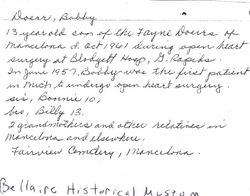 Doerr, Bobby
13 year old son of the Fayne Doerrs of
Mancelona d. Oct 1961 during open heart
surgery at Blodgett Hosp, G. Rapids.
In June 1957, Bobby was the first patient
in Mich. to undergo open heart surgery.
sis, Bonnie 10,
bro, Billy 13.
2 grandmothers and other relatives in
Mancelona and elsewhere.
Fairview Cemetery, Mancelona.
Bellaire Historical Museum